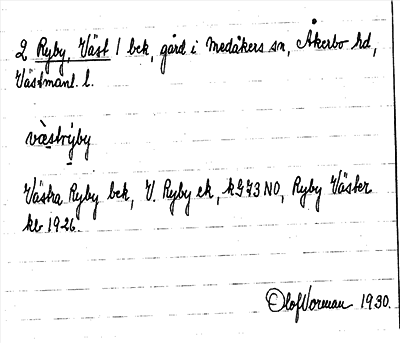 2 Ryby, Väst / bek, gård i Medåkers sn, Åkerbo hd,
Västmanl. l.
væstrýby
Västra Ryby bek, V. Ryby ek, kG 73 NO, Ryby Väster
kb 1926.
Olof Vorman 1930.